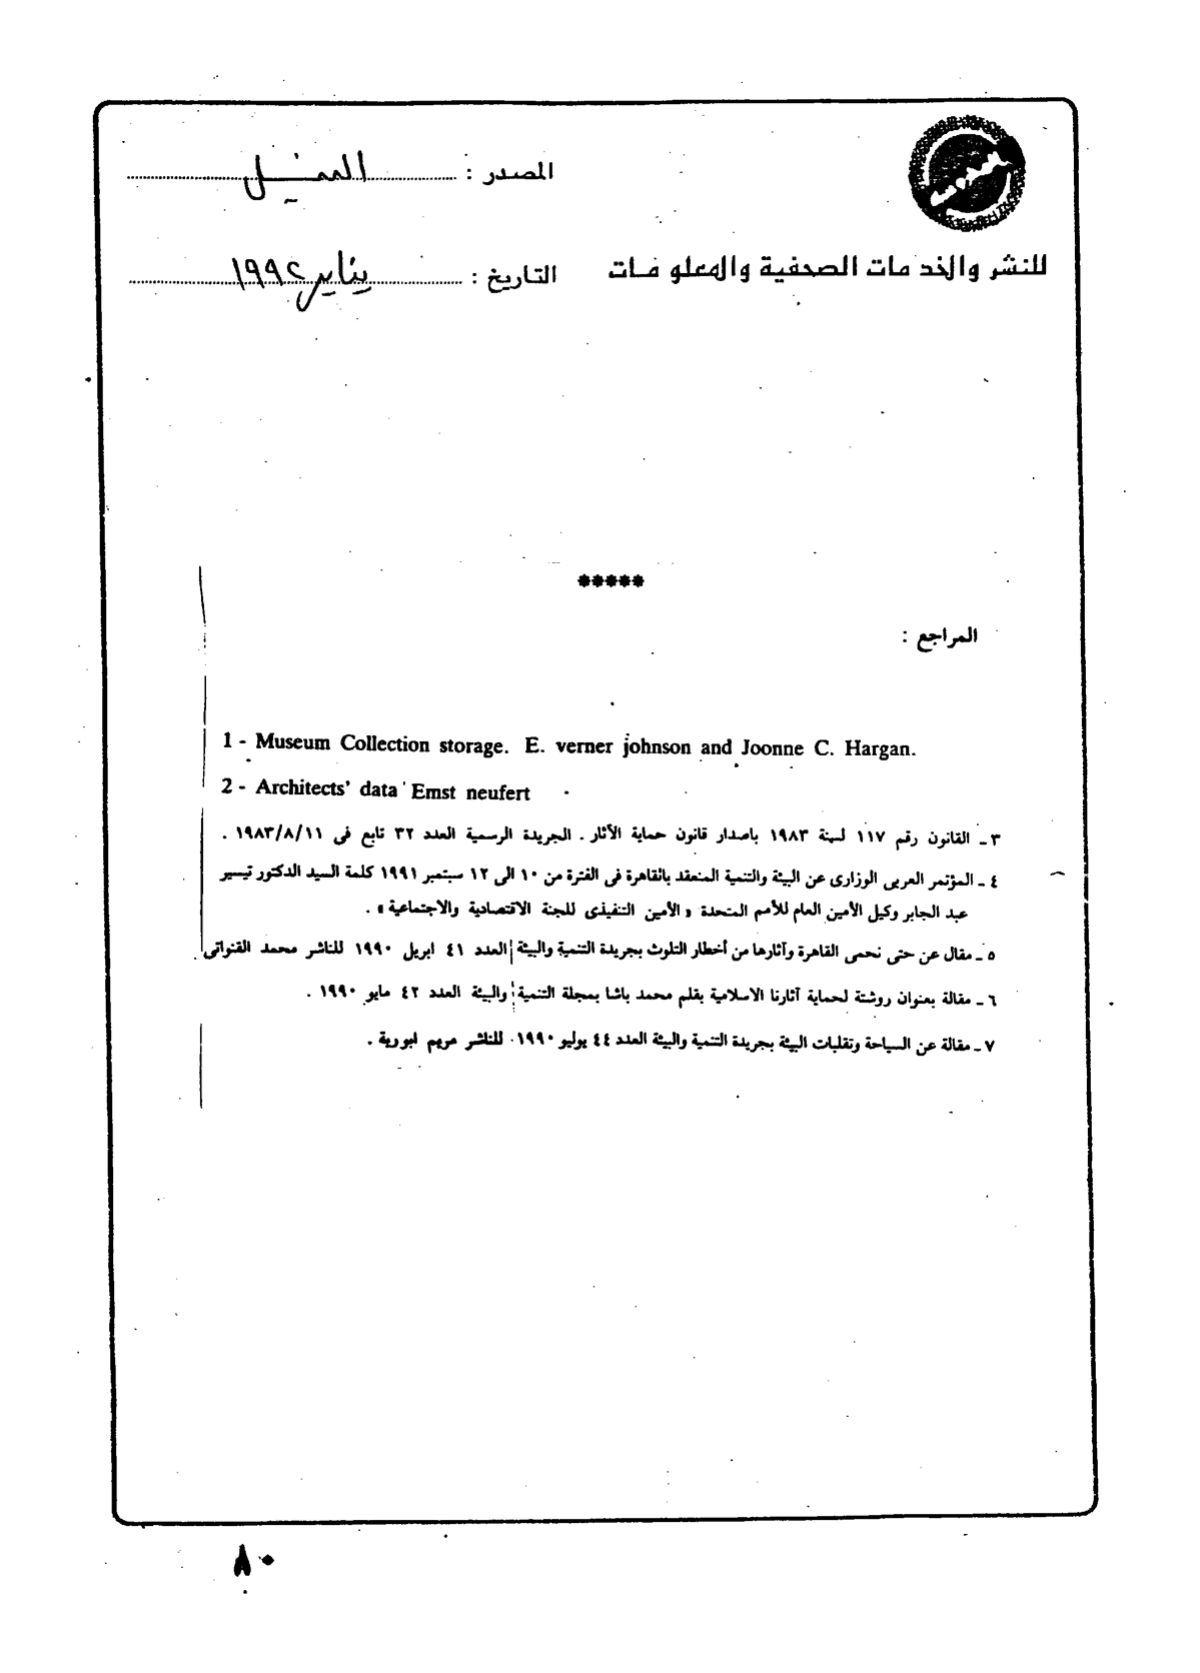 المصدر :
للنشر والخدمات الصحفية والمعلومات
التاريخ : يناير ١٩٩٢
*****
المراجع :
1 - Museum Collection storage. E. verner johnson and Joonne C. Hargan.
2 - Architects' data Emst neufert
٣ - القانون رقم ١١٧ لسنة ١٩٨٣ باصدار قانون حماية الأثار . الجريدة الرسمية العدد ٣٢ تابع فى ١٩٨٣/٨/١١ .
٤ - المؤتمر العربى الوزارى عن البيئة والتنمية المنعقد بالقاهرة فى الفترة من ١٠ الى ١٢ سبتمبر ١٩٩١ كلمة السيد الدكتور تيسير
عبد الجابر وكيل الأمين العام للأمم المتحدة « الأمين التنفيذى للجنة الاقتصادية والاجتماعية » .
٥ - مقال عن حتى نحمى القاهرة وآثارها من أخطار التلوث بجريدة التنمية والبيئة العدد ٤١ ابريل ١٩٩٠ للناشر محمد القنواتى .
٦ - مقالة بعنوان روشتة لحماية آثارنا الاسلامية بقلم محمد باشا بمجلة التنمية والبيئة العدد ٤٢ مايو ١٩٩٠ .
٧ - مقالة عن السياحة وتقلبات البيئة بجريدة التنمية والبيئة العدد ٤٤ يوليو ١٩٩٠ للناشر مريم ابورية .
٨٠